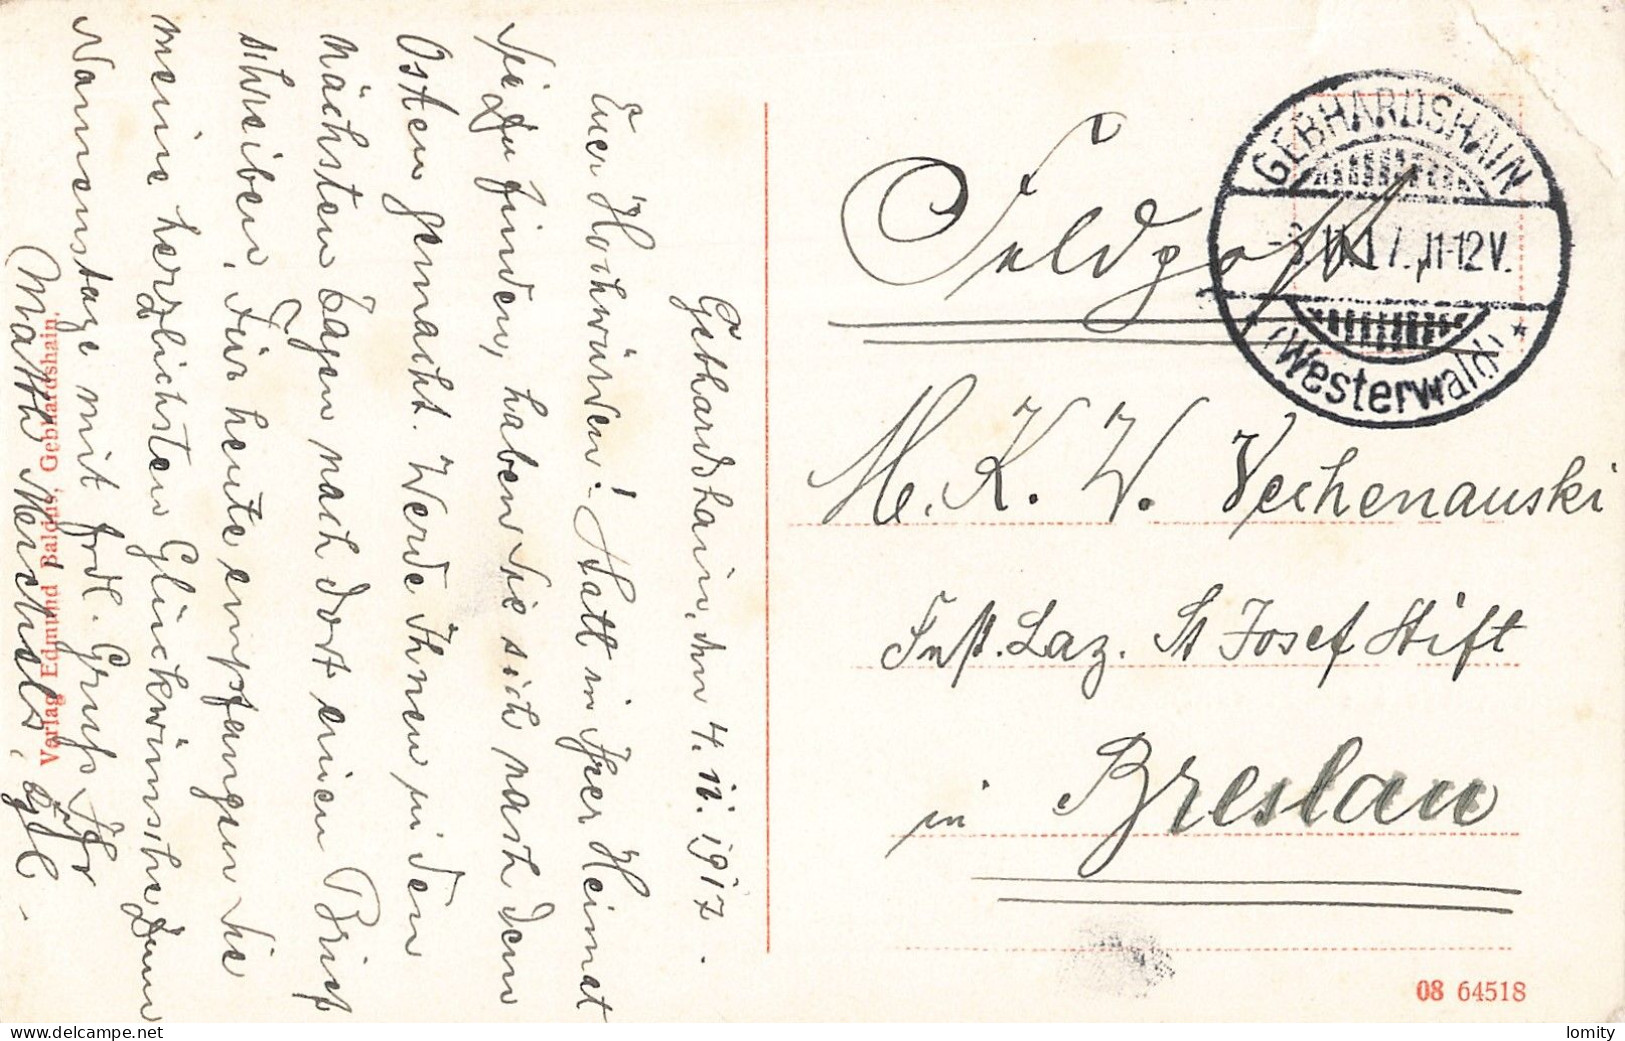 Gebhardshain, den 4. II. 1917.
Euer Hochwürden! Statt in Ihrer Heimat
Sie zu finden, haben Sie sich nach dem
Osten gemacht. Werde Ihnen in den
nächsten Tagen nach dort einen Brief
schreiben. Für heute empfangen Sie
meine herzlichsten Glückwünsche zum
Namenstage mit frdl. Gruß Ihr
Matth Meichsels.
Verlag Edmund Baldus, Gebhardshain.
Feldpost
GEBHARDSHAIN
17. 11-12V.
(Westerwald)
H. K. W. Vechenauski
Fest. Laz. St Josef Stift
in Breslau
08 64518
lomity